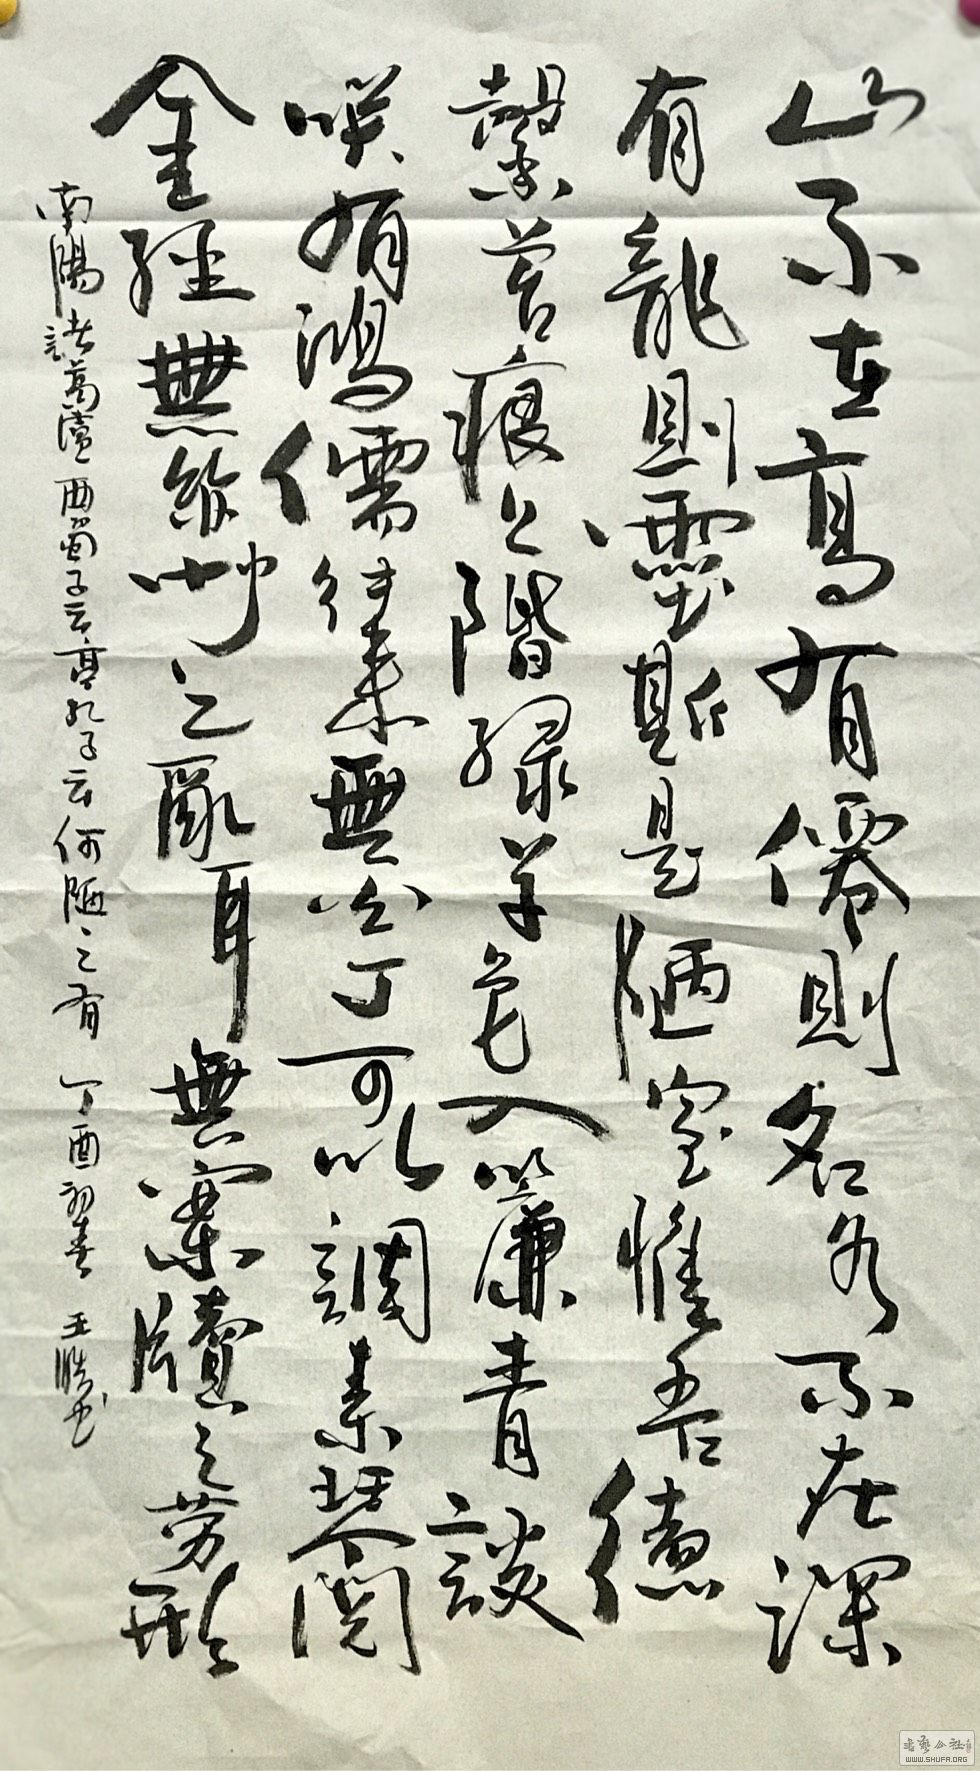 山不在高有僊則名水不在深
有龍則靈斯是陋室惟吾德
馨苔痕上階緑草色入簾青談
咲有鴻儒往來無白丁可以調素琴閲
金經無絲竹之亂耳無案牘之勞形
南陽諸葛廬西蜀子云亭孔子云何陋之有 丁酉初春 王书
書藝公社
WWW.SHUFA.ORG